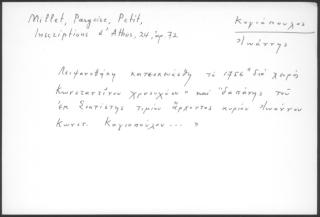 Millet, Pargoire, Petit,
Inscriptions d'Athos, 24, ἀρ. 72
Καγιόπουλος
Ἰωάννης
Λειψανοθήκη κατεσκευάσθη τὸ 1756 "διὰ χειρὸς
Κωνσταντίνου χρυσοχόου" καὶ "δαπάνης τοῦ
ἐκ Σιατίστης τιμίου ἄρχοντος κυρίου Ἰωάννου
Κωνστ. Καγιοπούλου... "